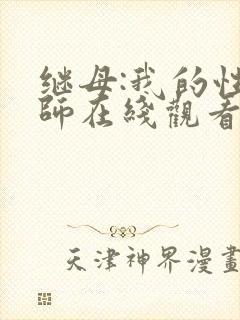 继母:我的性
师在綫觀看
天津神界漫畫